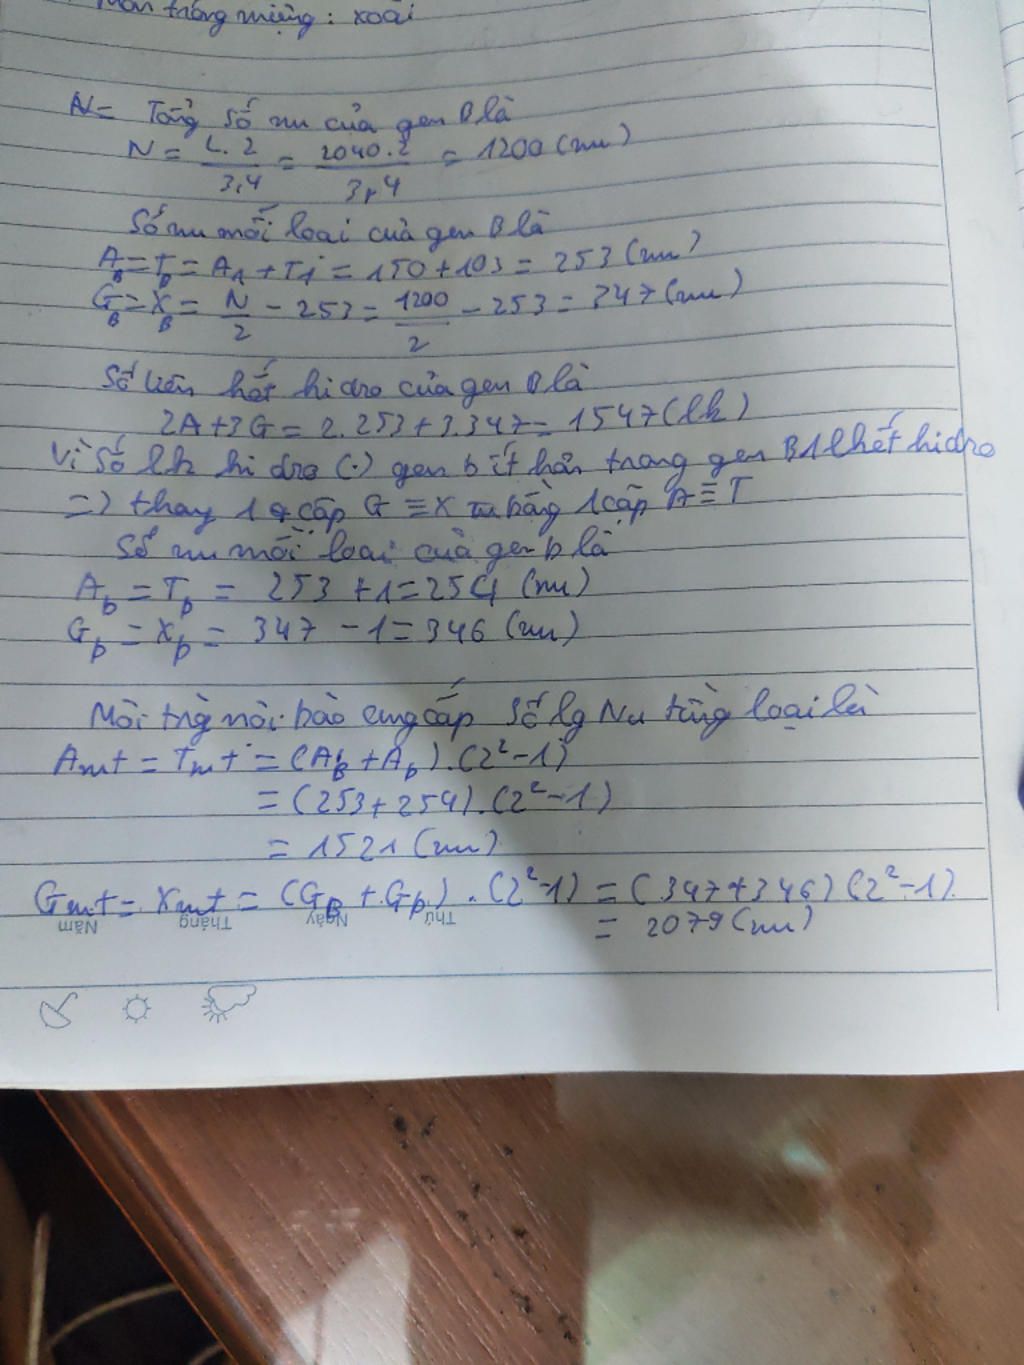 trong miệng: xoài
N= Tổng số nu của gen B là
N = L.2/3,4 = 2040.2/3,4 = 1200 (nu)
Số nu mỗi loại của gen B là
A_B = T_B = A1 + T1 = 150 + 103 = 253 (nu)
G_B = X_B = N/2 - 253 = 1200/2 - 253 = 347 (nu)
Số liên kết hidro của gen B là
2A+3G = 2.253+3.347 = 1547 (lk)
Vì số lk hidro (.) gen b ít hơn trong gen B 1 lkết hidro
=> thay 1 cặp G ≡ X bằng 1 cặp A ≡ T
Số nu mỗi loại của gen b là
A_b = T_b = 253 + 1 = 254 (nu)
G_b = X_b = 347 - 1 = 346 (nu)
Môi trg nội bào cung cấp số lg Nu từng loại là
Amt = Tmt = (A_B + A_b).(2²-1)
= (253+254).(2²-1)
= 1521 (nu)
Gmt = Xmt = (G_B + G_b).(2²-1) = (347+346)(2²-1).
= 2079 (nu)
Thứ Ngày Tháng Năm